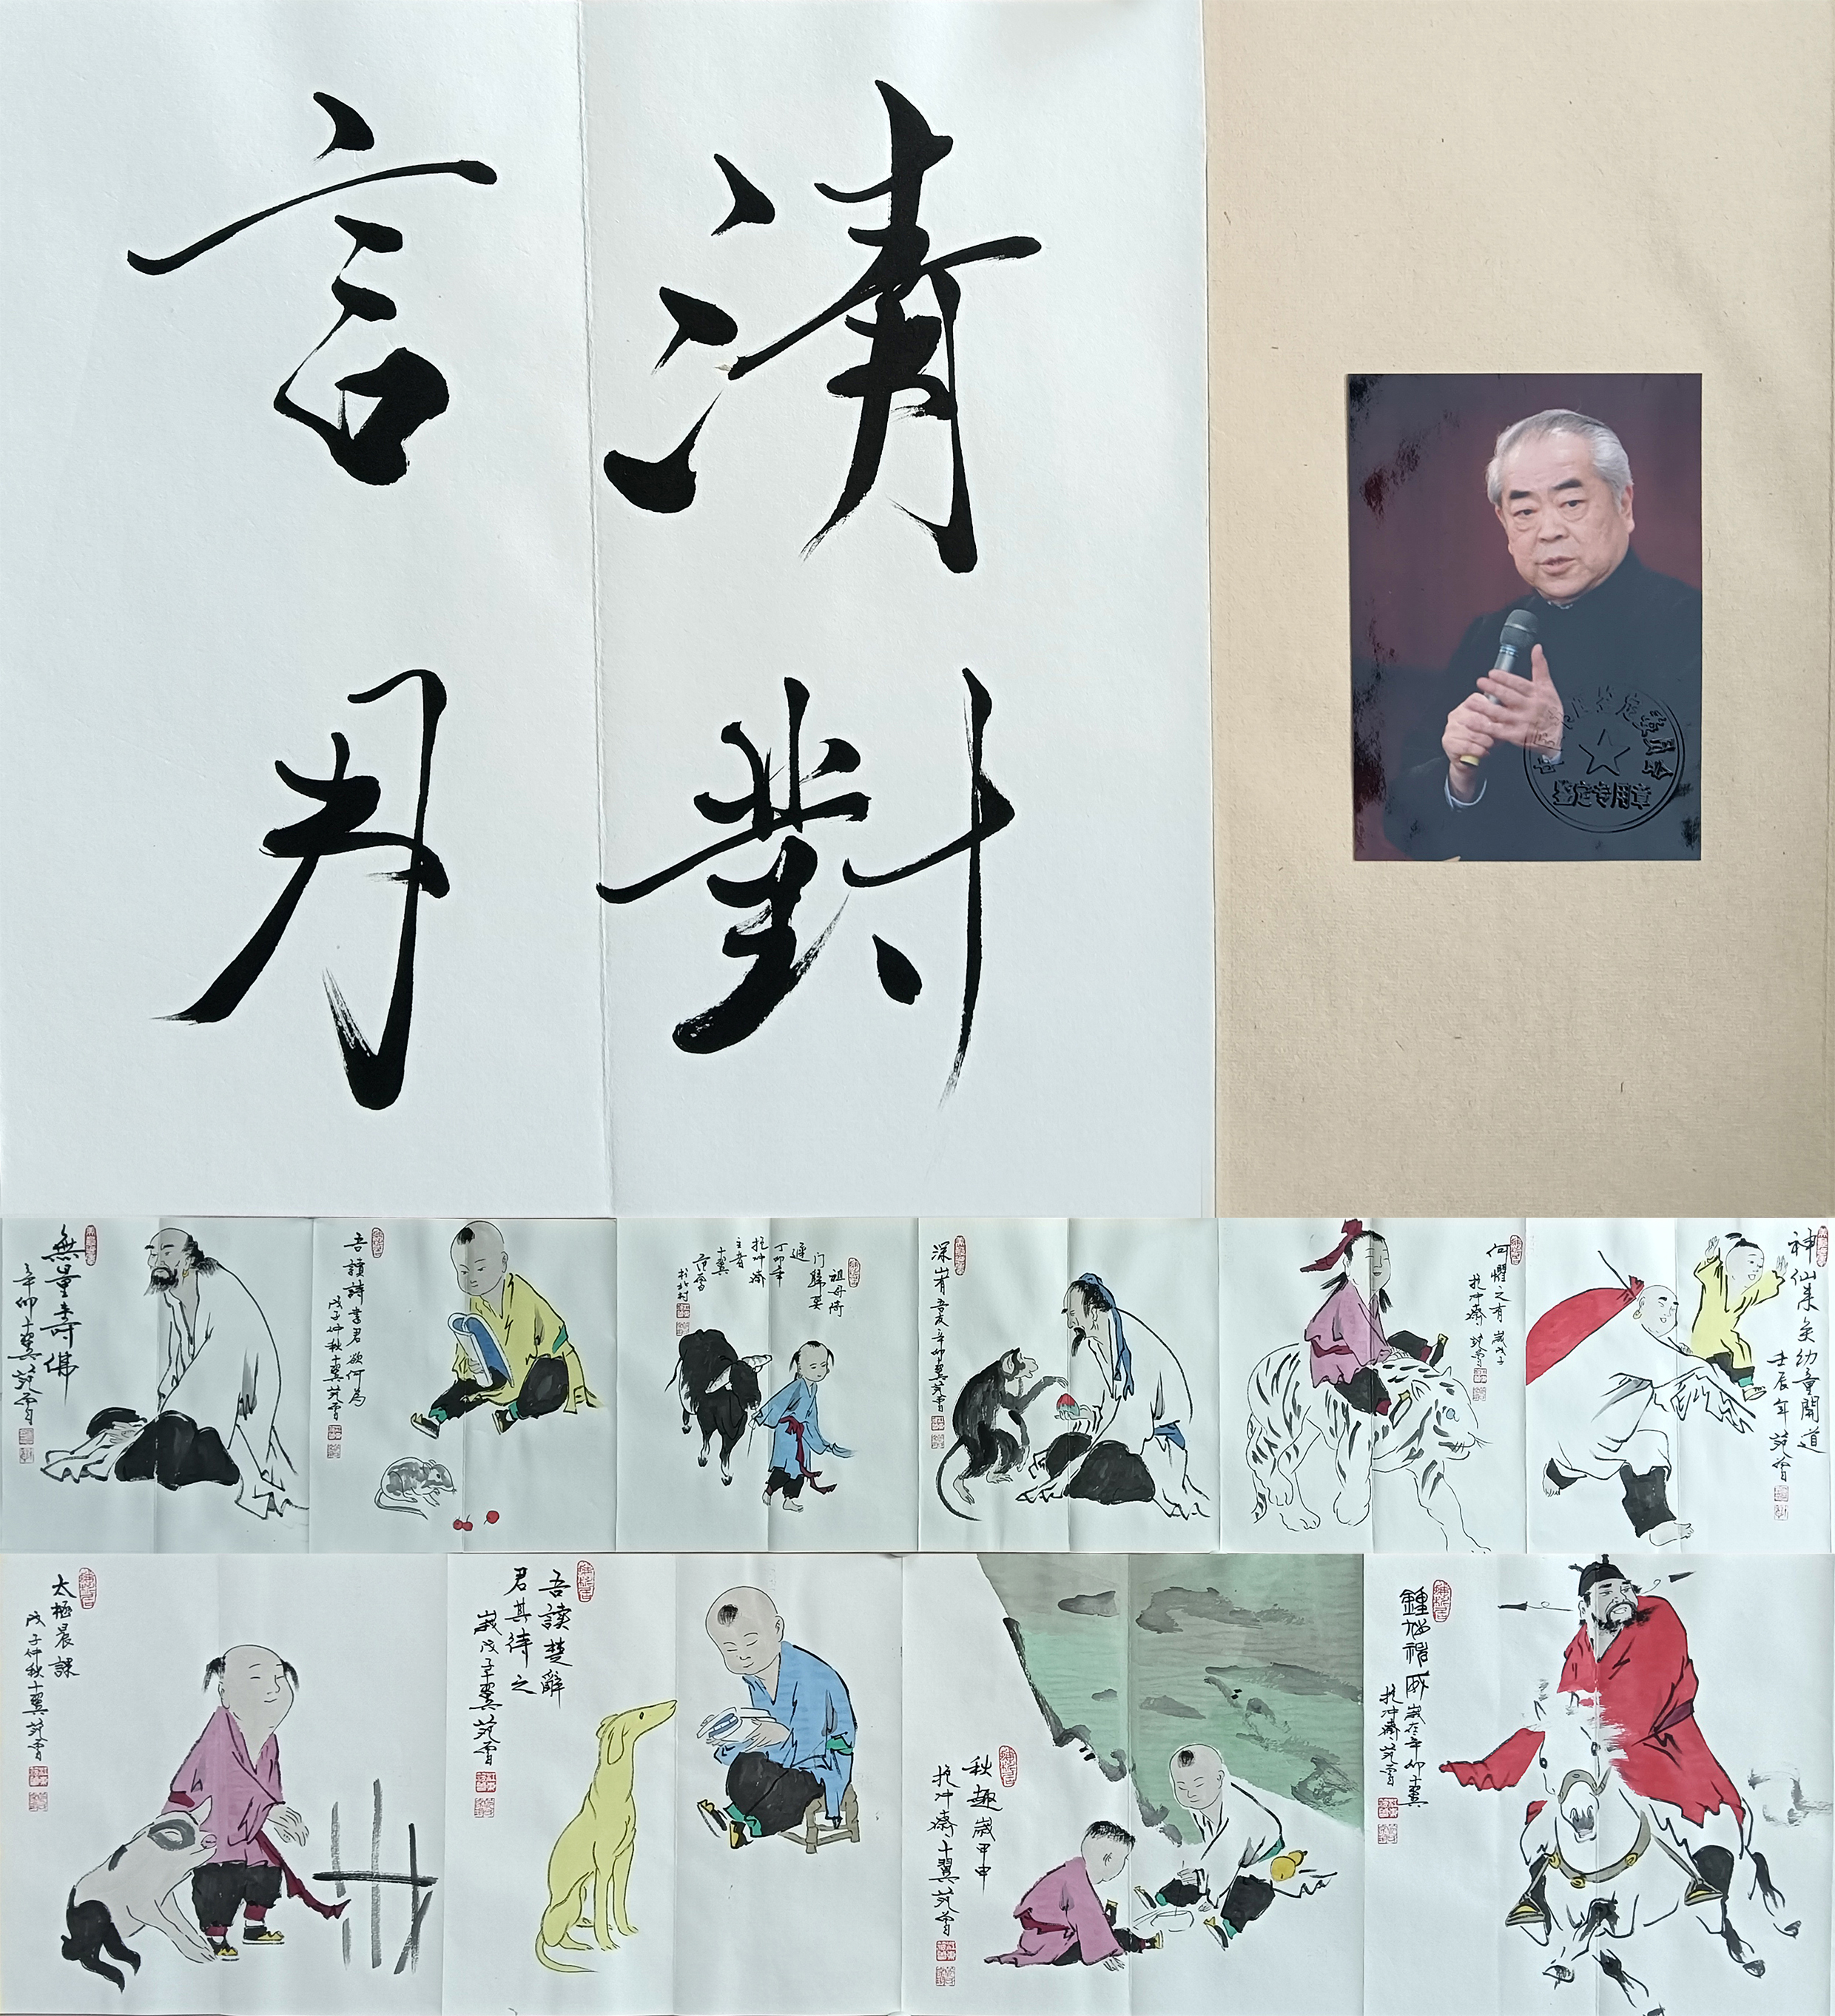 清對
言月
鉴定专用章
無量壽佛
辛卯十翼范曾
吾讀詩書君欲何為
戊子仲秋十翼范曾
祖母倚
门歸要
遲
丁卯年
抱冲齋
主者
十翼
范曾
深山有喜友辛卯十翼范曾
何懼之有歲戊子
抱冲齋范曾
神仙来矣幼童開道
壬辰年范曾
太極晨課
戊子仲秋十翼范曾
吾讀楚辭
君其待之
歲戊子十翼范曾
秋趣歲甲申
抱冲齋十翼范曾
鍾馗稽威歲在辛卯十翼
抱冲齋范曾